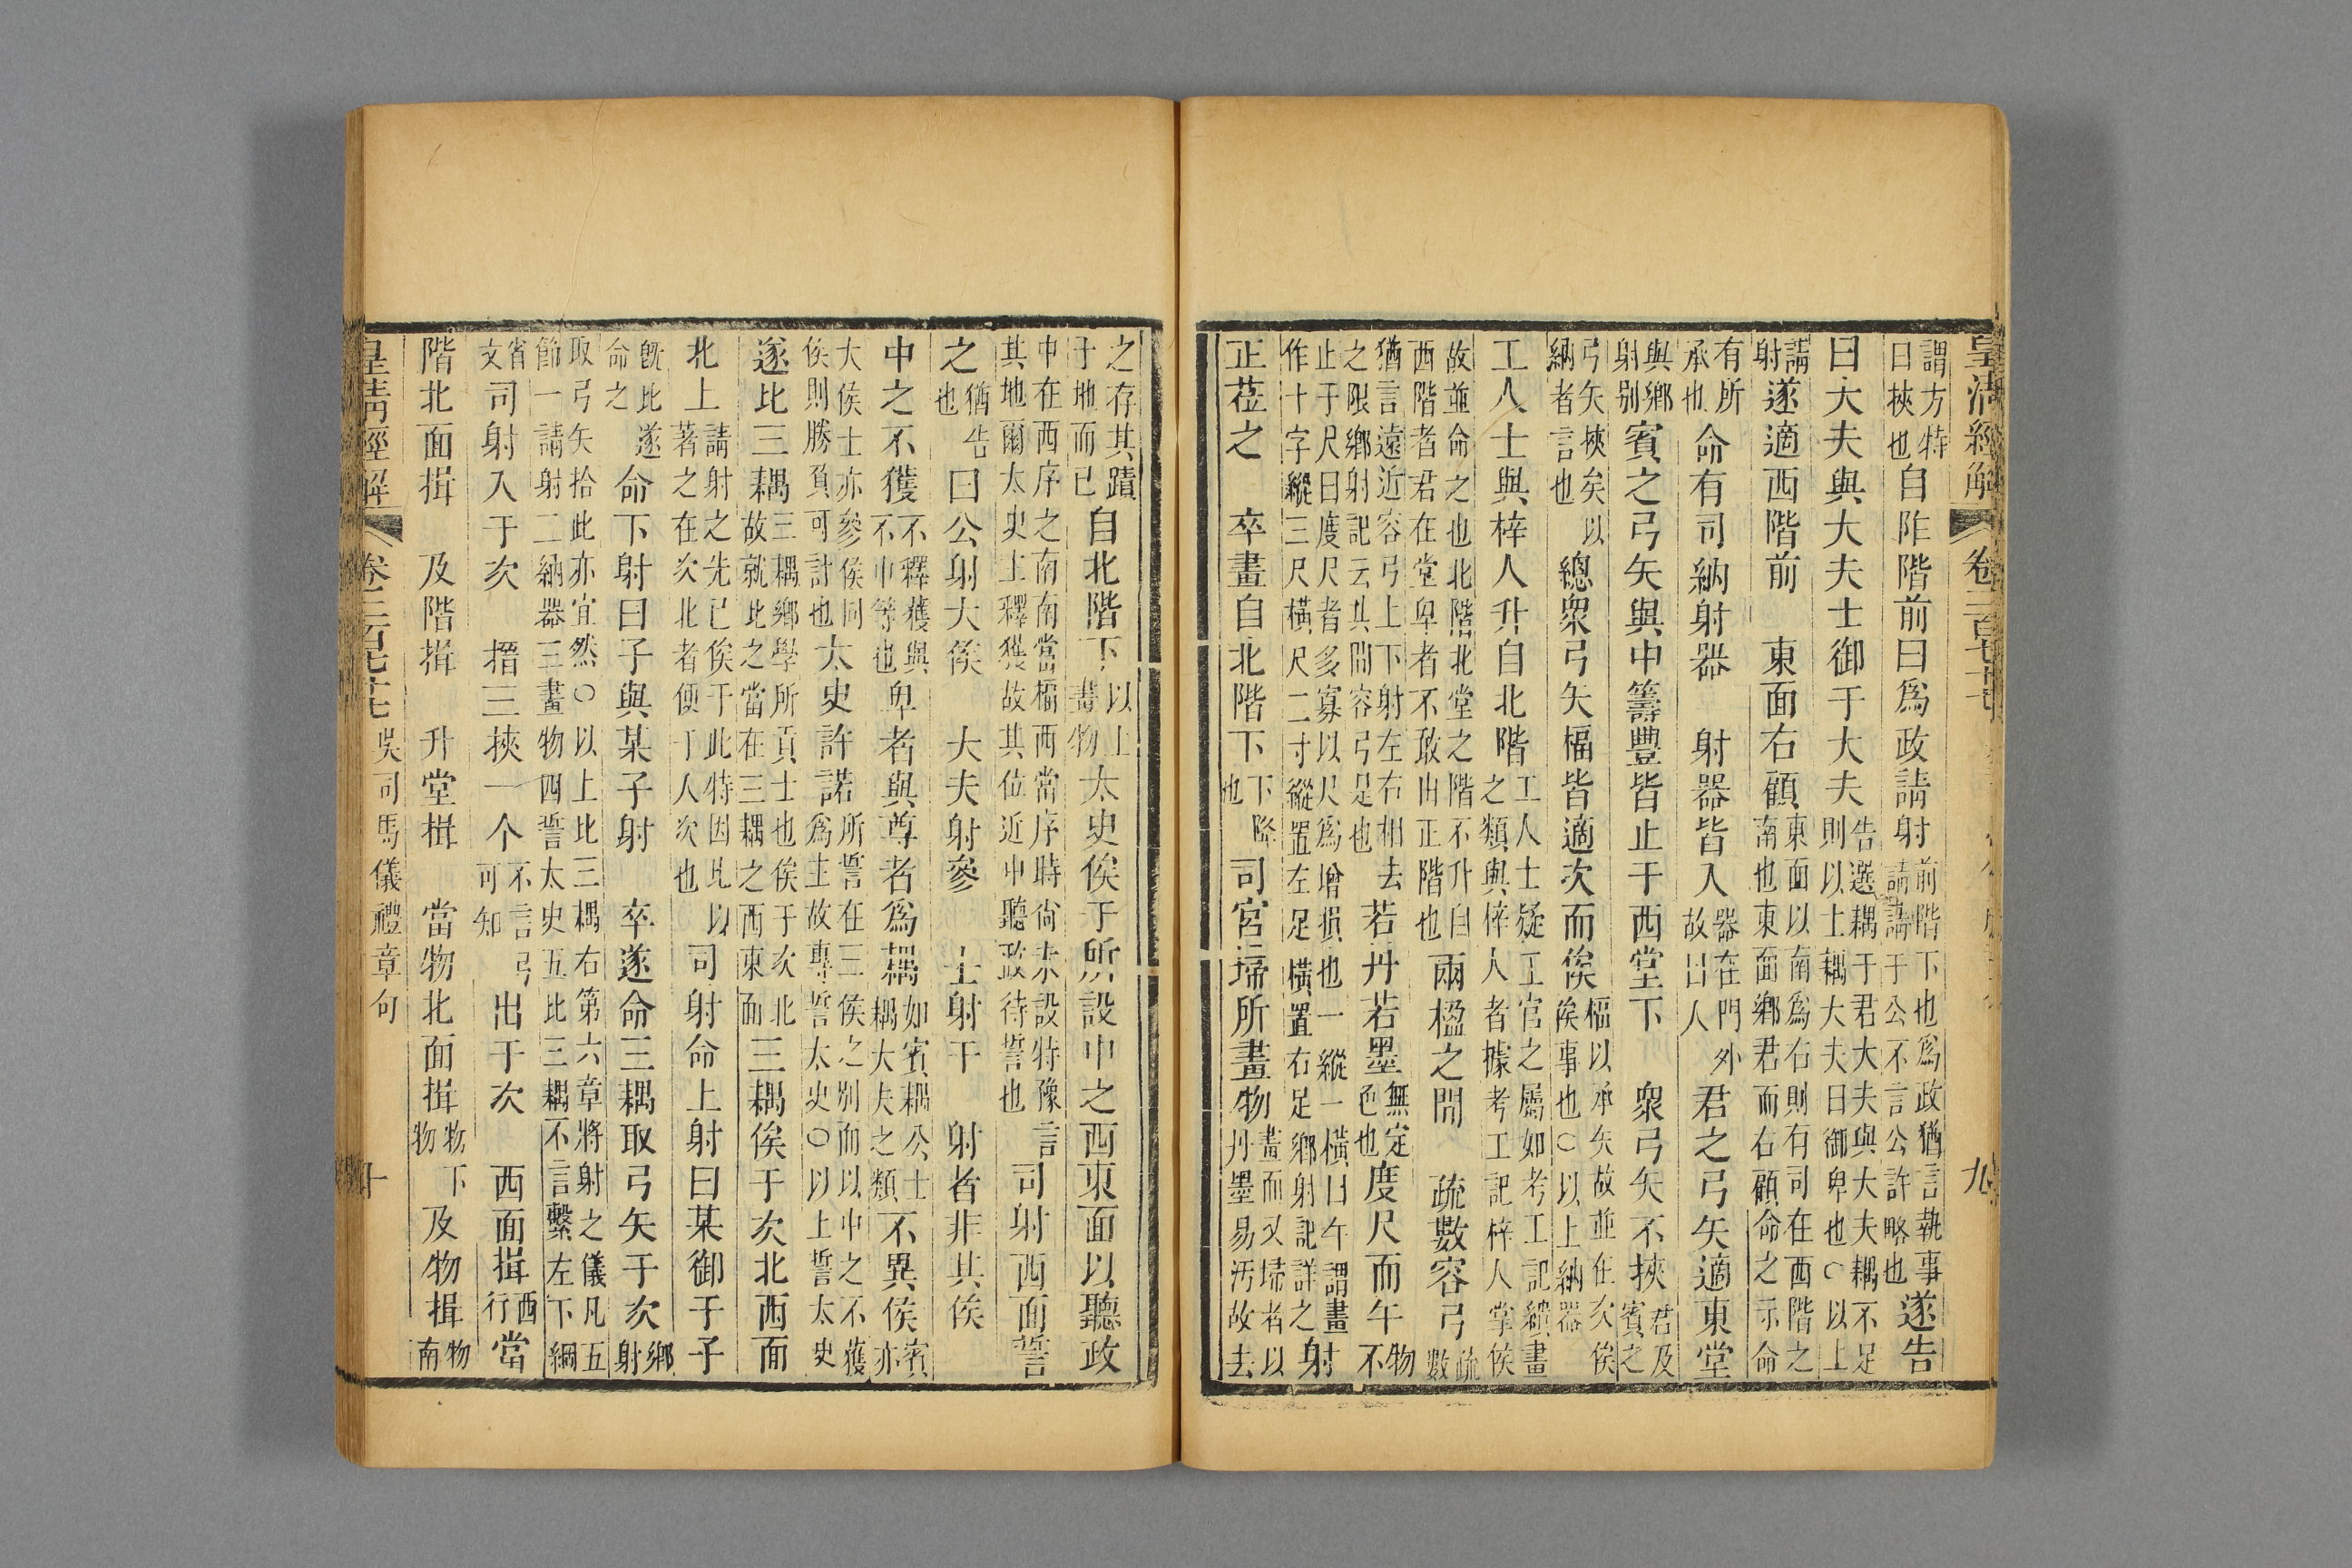 皇清經解 卷二百七十七 九
謂方特曰挾也自阼階前曰爲政請射前階下也爲政猶言執事請請于公不言公許略也遂告
曰大夫與大夫士御于大夫告選耦于君大夫與大夫耦不足則以士耦大夫曰御卑也○以上
請射遂適西階前 東面右顧東面以南爲右則有司在西階之南也東面鄉君而右顧命之示命
有所承也命有司納射器 射器皆入器在門外故曰入君之弓矢適東堂
與鄉射別賓之弓矢與中籌豐皆止于西堂下 衆弓矢不挾君及賓之
弓矢挾矣以納者言也總衆弓矢楅皆適次而俟楅以承矢故並在次俟俟事也○以上納器
工人士與梓人升自北階工人士疑工官之屬如考工記繢畫之類與梓人者據考工記梓人掌侯
故並命之也北階北堂之階不升自西階者君在堂卑者不敢由正階也兩楹之間 疏數容弓疏數
猶言遠近容弓上下射左右相去之限鄉射記云其間容弓足也若丹若墨無定色也度尺而午物不
止于尺曰度尺者多寡以尺爲增損也一縱一橫曰午謂畫作十字縱三尺橫尺二寸縱置左足橫置右足鄉射記詳之射
正莅之 卒畫自北階下下降也司宮埽所畫物畫而又埽者以丹墨易汚故去
之存其蹟于地而已自北階下以上畫物太史俟于所設中之西東面以聽政
中在西序之南南當楅西當序時尚未設特豫言其地爾太史主釋獲故其位近中聽政待誓也司射西面誓
之猶告也曰公射大侯 大夫射參 士射干 射者非其侯
中之不獲不釋獲與不中等也卑者與尊者爲耦如賓耦公士耦大夫之類不異侯賓亦
大侯士亦參侯同侯則勝負可計也太史許諾所誓在三侯之別而以中之不獲爲主故專誓太史○以上誓太史
遂比三耦三耦鄉學所貢士也俟于次北故就此之當在三耦之西東面三耦俟于次北西面
北上請射之先已俟于此特因此以著之在次北者便于人次也司射命上射曰某御于子
既比遂命之命下射曰子與某子射 卒遂命三耦取弓矢于次鄉射
取弓矢拾此亦宜然○以上比三耦右第六章將射之儀凡五節一請射二納器三畫物四誓太史五比三耦不言繫左下綱
省文司射入于次 搢三挾一个不言弓可知出于次 西面揖西行當
階北面揖 及階揖 升堂揖 當物北面揖物下物及物揖物南
皇清經解 卷二百七十七 吳司馬儀禮章句 十